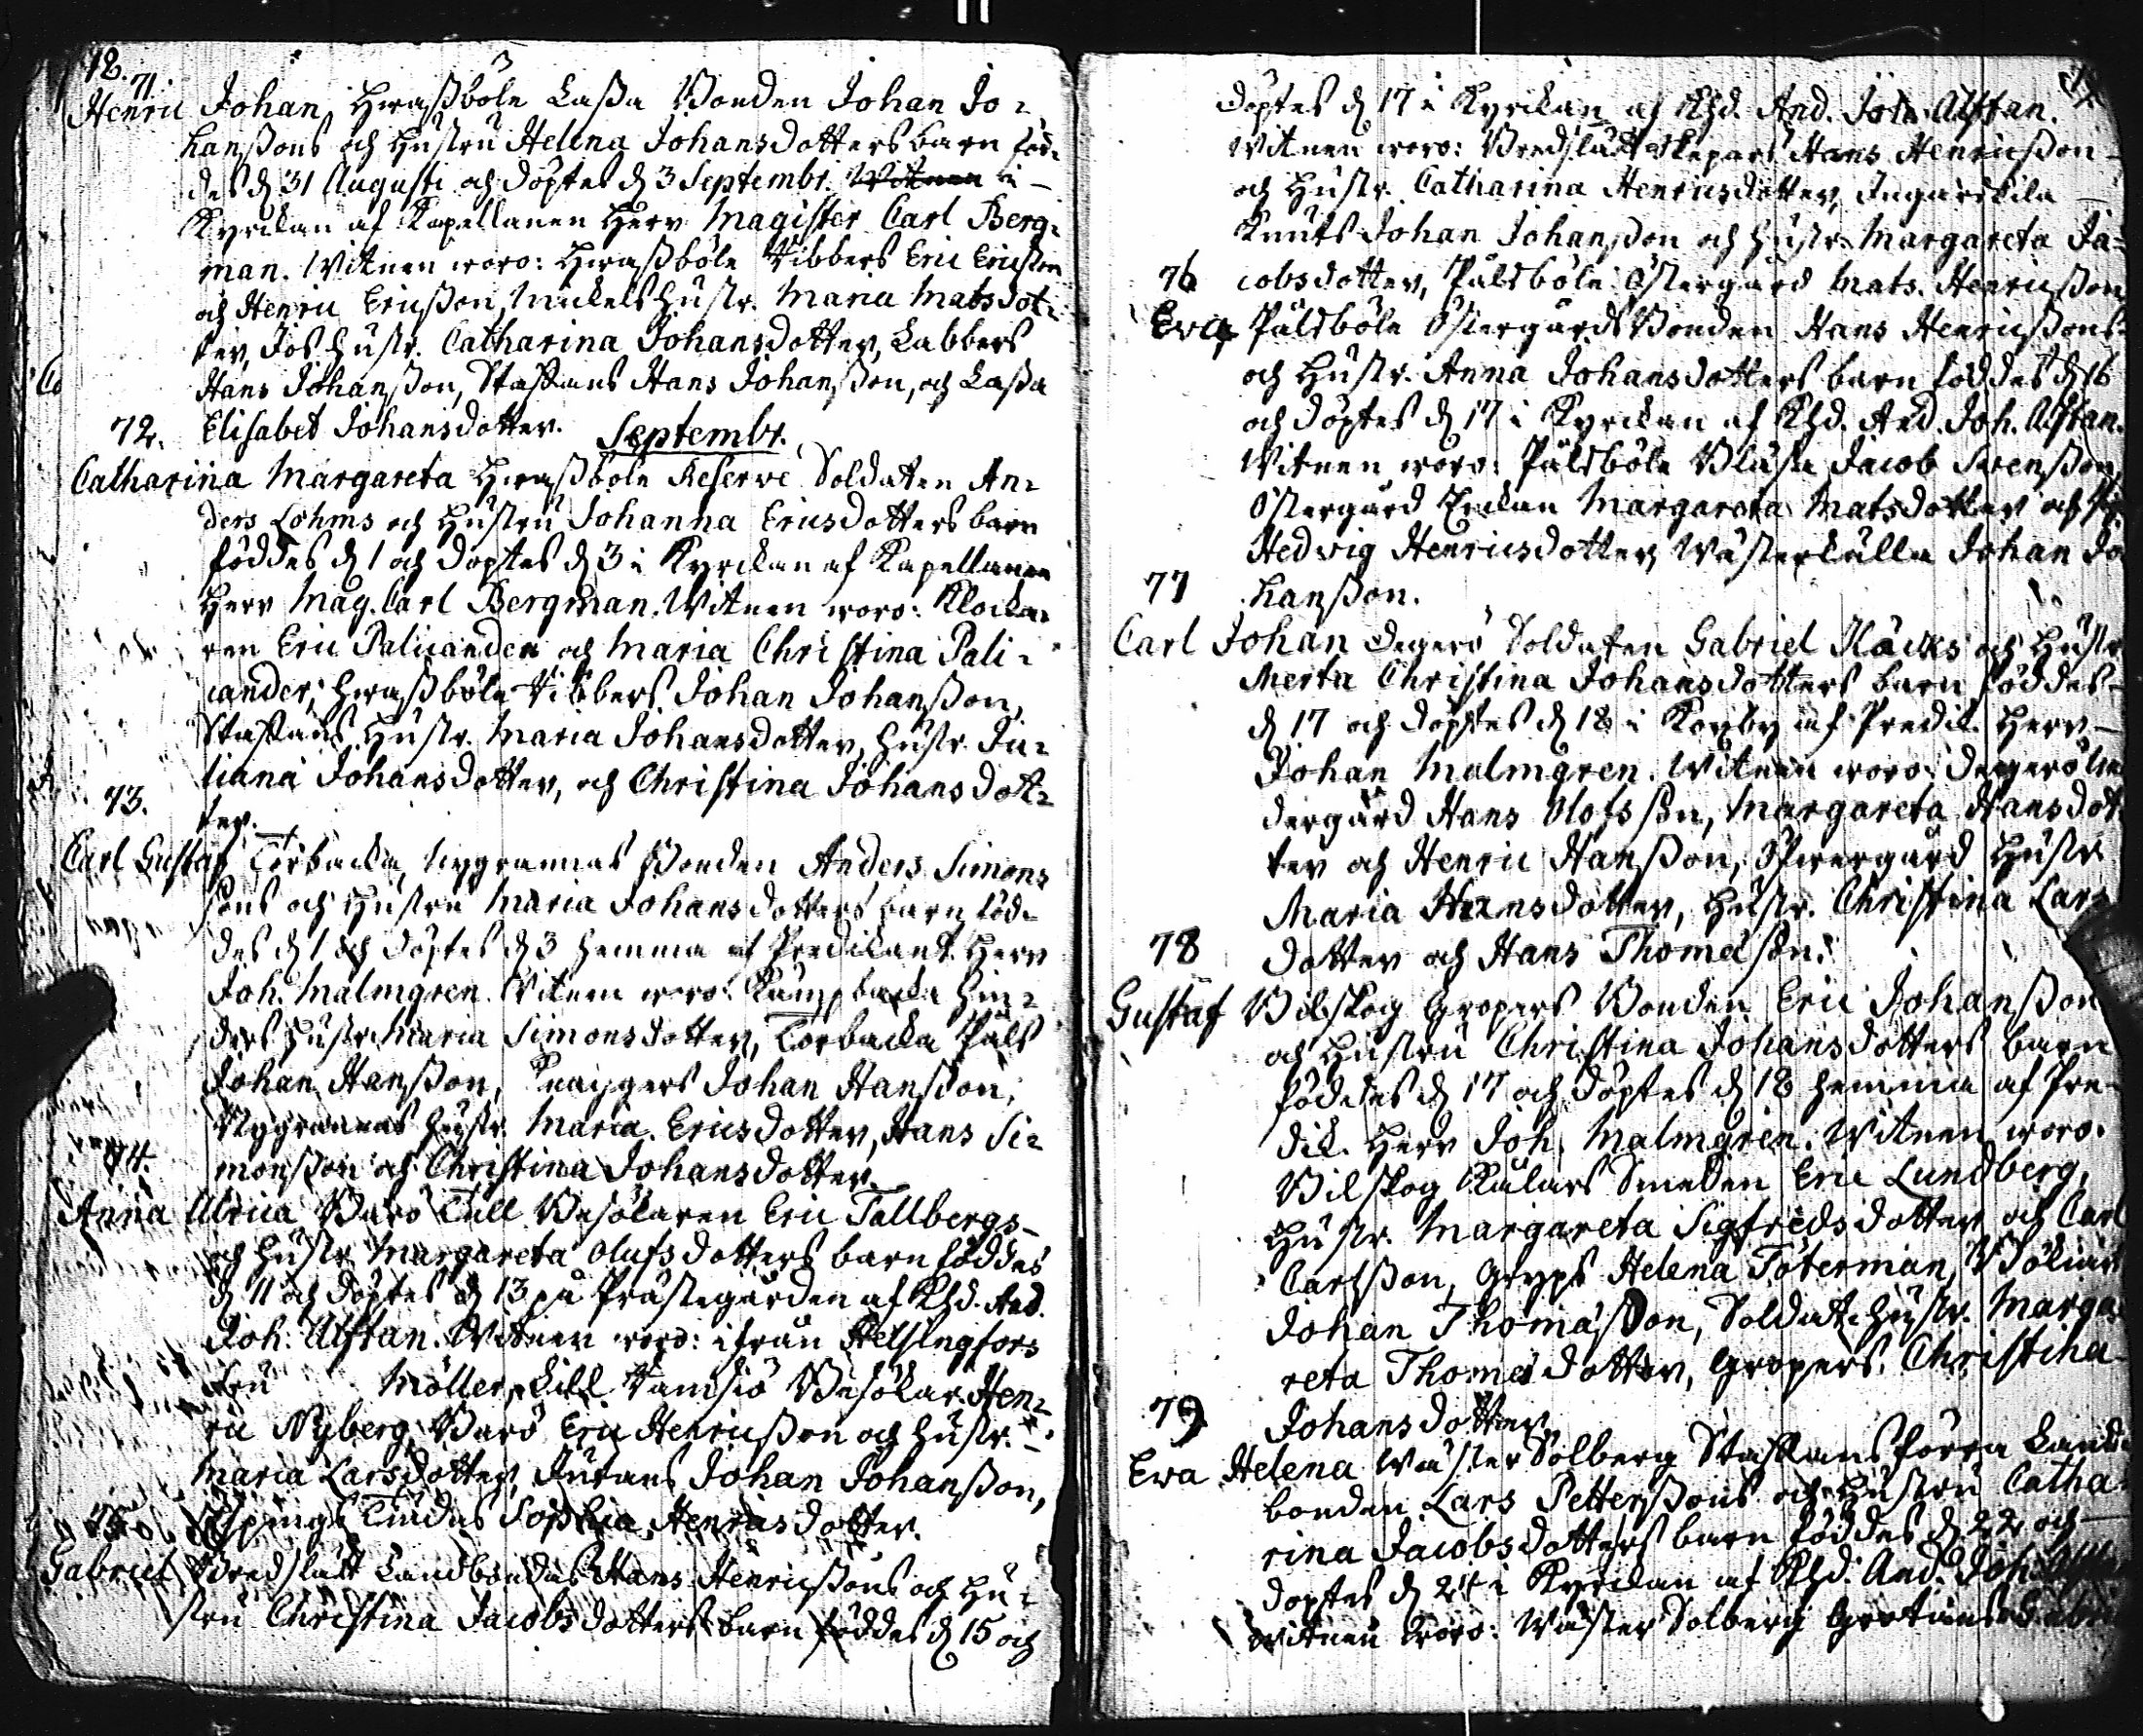 12.
71.
Henric Johan, Hwaßböle Laßa Bonden Johan Jo-
hanßons och Hustru Helena Johansdotters barn föd-
des d. 31 Augusti och döptes d. 3 Septembr. Witnen i
Kyrckan af Kapellanen Herr Magister Carl Berg-
man. Witnen woro: Hwaßböle Vibbers Eric Ericßon
och Henric Ericßon, Mickels Hustr. Maria Matsdot-
ter, Jos Hustr. Catharina Johansdotter, Labbers
Hans Johanßon, Staffans Hans Johanßon, och Laßa
Elisabet Johansdotter.
Septembr.
72.
Catharina Margareta Hwaßböle Reserve Soldaten An-
ders Lohms och Hustru Johanna Ericsdotters barn
föddes d. 1 och döptes d. 3 i Kyrckan af Kapellanen
Herr Mag. Carl Bergman. Witnen woro: Klocka-
ren Eric Palicander och Maria Christina Pali-
cander, Hwaßböle Vibbers Johan Johanßon,
Staffans Hustr. Maria Johansdotter, Hustr. Ju-
liana Johansdotter, och Christina Johansdot-
ter.
73.
Carl Gustaf Torbacka Nygrannas Bonden Anders Simons
sons och Hustru Maria Johansdotters barn föd-
des d. 1 och döptes d. 3 hemma af Predikant. Herr
Joh. Malmgren. Witnen woro: Kungsbacka Hin-
ders Hustr. Maria Simonsdotter, Torbacka Påls
Johan Hanßon, Knaggers Johan Hanßon,
Nygrannas Hustr. Maria Ericsdotter, Hans Si-
monßon och Christina Johansdotter.
74.
Anna Ulrica Warö Tull Besökaren Eric Tallbergs
och Hustr. Margareta Olufsdotters barn föddes
d. 11 och döptes d. 13 på Prästegården af Khd. And.
Joh. Alftan. Witnen woro: ifrån Helsingfors
Fru Möller, Lill Pamsiö Besökar. Hen-
ric Nyberg, Warö Eric Henricßon och Hustr.
Maria Larsdotter, Jutans Johan Johanßon,
Spings Sophia Henricsdotter.
75
Gabriel Bredslätt Landbondas Hans Henricßons och Hu-
stru Christina Jacobsdotters barn föddes d. 15 och
döptes d. 17 i Kyrckan af Khd. And. Joh. Alftan.
Witnen woro: Bredslätt Skepars Hans Henricßon
och Hustr. Catharina Henricsdotter, Ingarskila
Knuts Johan Johanßon och Hustr. Margareta Ja-
cobsdotter, Påldsböle Östergård Mats Henricßon
76
Eva, Påldsböle Östergårds Bonden Hans Henricßons
och Hustr. Anna Johansdotters barn föddes d. 16
och döptes d. 17 i Kyrckan af Khd. And. Joh. Alftan.
Witnen woro: Påldsböle Blåse Jacob Svenßon,
Östergård Enckan Margareta Matsdotter och
Hedvig Henricsdotter, Wästerkulla Johan Jo
hanßon.
77
Carl Johan Degerö Soldaten Gabriel Käcks och Hustr
Merta Christina Johansdotters barn föddes
d. 17 och döptes d. 18 i Korsby af Predik. Herr
Johan Malmgren. Witnen woro: Degerö Ne
dergård Hans Olofsson, Margareta Hansdot
ter och Henric Hanßon, Öfwergård Hustr
Maria Hansdotter, Hustr. Christina Lars
dotter och Hans Thomæson.
78
Gustaf Bilskog Gropers Bonden Eric Johanßon
och Hustru Christina Johansdotters barn
föddes d. 17 och döptes d. 18 hemma af Pre-
dik. Herr Joh. Malmgren. Witnen woro.
Bilskog Kulars Smeden Eric Lundberg,
Hustr. Margareta Sigfredsdotter och Carl
Carlßon, Gryps Helena Töterman,
Johan Thomasson, Soldat. Hustr. Marga-
reta Thomæ dotter, Gropers Christina
Johansdotter.
79
Eva Helena Wäster Solberg Staffans förra Land
bonden Lars Petterßons och Hustru Catha-
rina Jacobsdotters barn föddes d. 22 och
döptes d. 24 i Kyrckan af Khd. And. Joh.
Witnen woro: Wäster Solberg